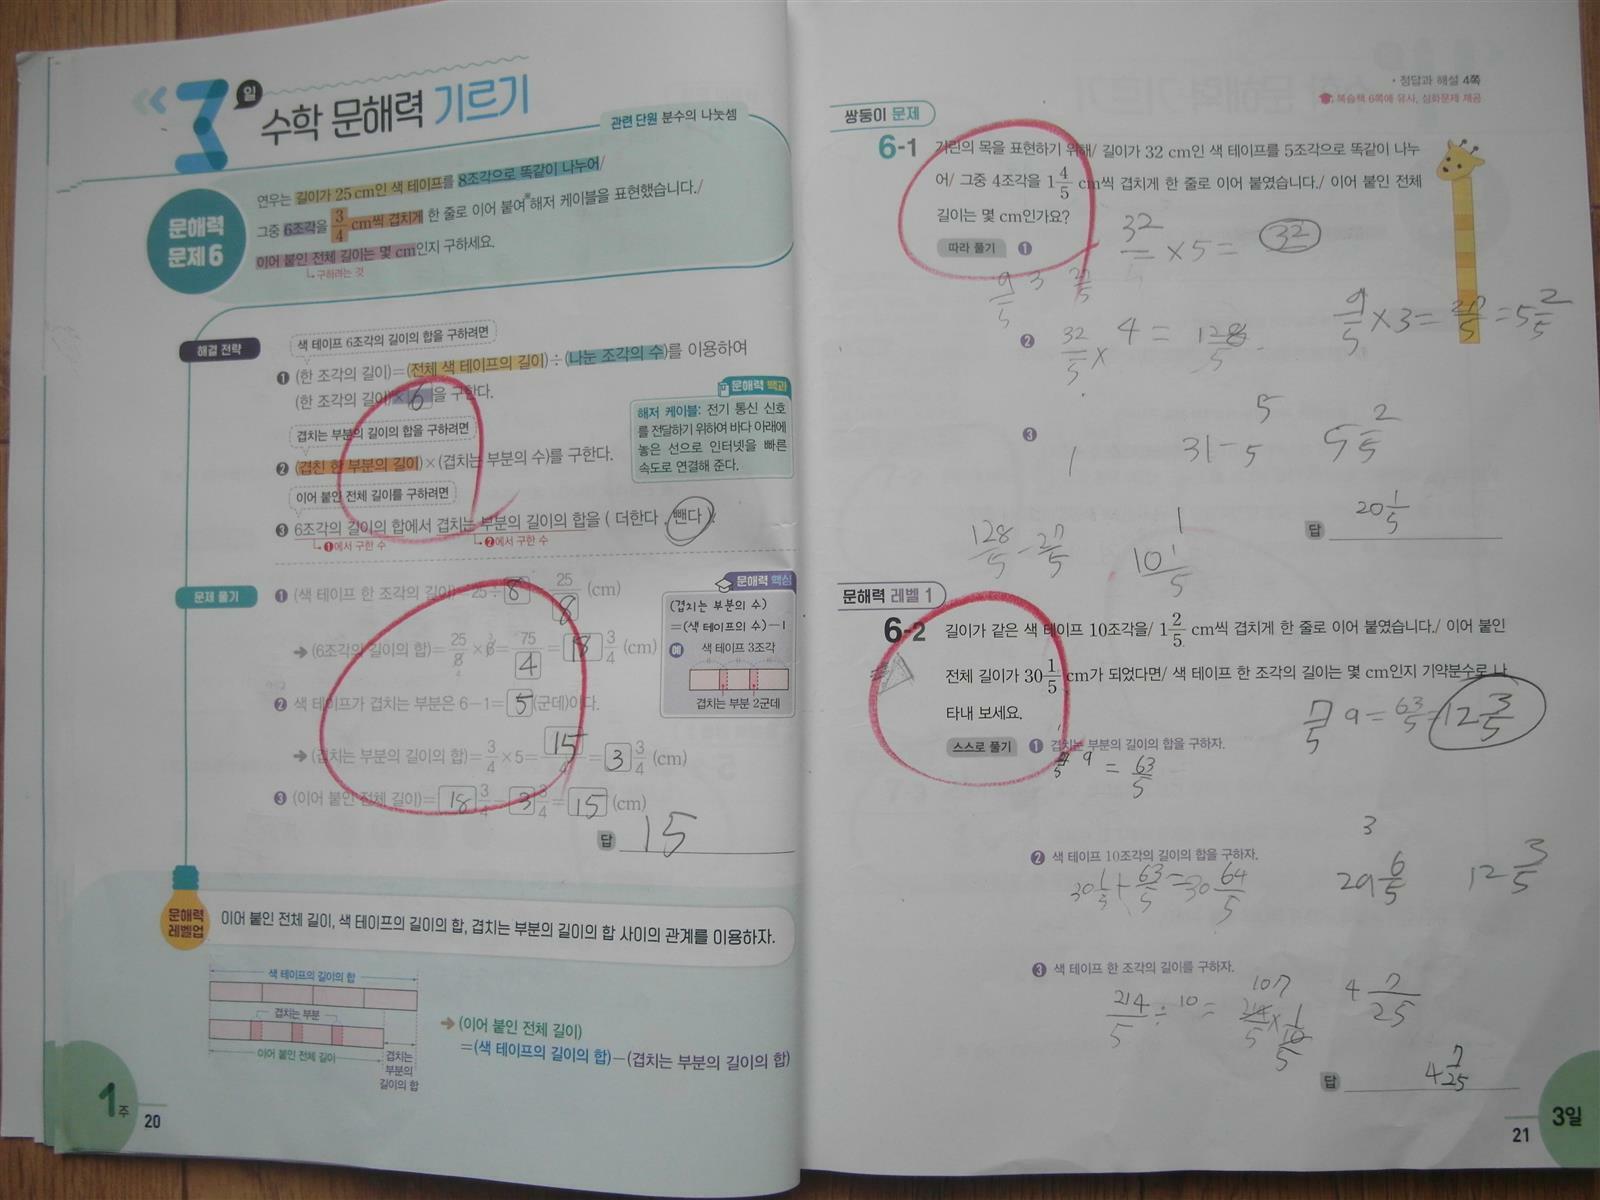 3일 수학 문해력 기르기
관련 단원 분수의 나눗셈
문해력 문제 6
연우는 길이가 25 cm인 색 테이프를 8조각으로 똑같이 나누어/
그중 6조각을 3/4 cm씩 겹치게 한 줄로 이어 붙여 해저 케이블을 표현했습니다./
이어 붙인 전체 길이는 몇 cm인지 구하세요.
구하려는 것
해결 전략
색 테이프 6조각의 길이의 합을 구하려면
❶ (한 조각의 길이)=(전체 색 테이프의 길이)÷(나눈 조각의 수)를 이용하여
(한 조각의 길이)×6을 구한다.
겹치는 부분의 길이의 합을 구하려면
❷ (겹친 한 부분의 길이)×(겹치는 부분의 수)를 구한다.
이어 붙인 전체 길이를 구하려면
❸ 6조각의 길이의 합에서 겹치는 부분의 길이의 합을 ( 더한다 , 뺀다 ).
❶에서 구한 수
❷에서 구한 수
문해력 백과
해저 케이블: 전기 통신 신호
를 전달하기 위하여 바다 아래에
놓은 선으로 인터넷을 빠른
속도로 연결해 준다.
문제 풀기
❶ (색 테이프 한 조각의 길이)=25÷8=25/8 (cm)
➔ (6조각의 길이의 합)=25/8×6=75/4=18 3/4 (cm)
❷ 색 테이프가 겹치는 부분은 6-1=5(군데)이다.
➔ (겹치는 부분의 길이의 합)=3/4×5=15/4=3 3/4 (cm)
❸ (이어 붙인 전체 길이)=18 3/4-3 3/4=15 (cm)
답 15
문해력 핵심
(겹치는 부분의 수)
=(색 테이프의 수)-1
예 색 테이프 3조각
겹치는 부분 2군데
문해력 레벨업
이어 붙인 전체 길이, 색 테이프의 길이의 합, 겹치는 부분의 길이의 합 사이의 관계를 이용하자.
색 테이프의 길이의 합
겹치는 부분
이어 붙인 전체 길이
겹치는
부분의
길이의 합
➔ (이어 붙인 전체 길이)
=(색 테이프의 길이의 합)-(겹치는 부분의 길이의 합)
1주
20
• 정답과 해설 4쪽
복습책 6쪽에 유사, 심화문제 제공
쌍둥이 문제
6-1 기린의 목을 표현하기 위해/ 길이가 32 cm인 색 테이프를 5조각으로 똑같이 나누
어/ 그중 4조각을 1 4/5 cm씩 겹치게 한 줄로 이어 붙였습니다./ 이어 붙인 전체
길이는 몇 cm인가요?
따라 풀기 ❶
32 ×5= 32
9/5 3 27/5
9/5×3=27/5=5 2/5
❷ 32/5×4=128/5
❸
1
31-5/5
5 2/5
128/5-27/5
10 1/5
답 20 1/5
문해력 레벨 1
6-2 길이가 같은 색 테이프 10조각을/ 1 2/5 cm씩 겹치게 한 줄로 이어 붙였습니다./ 이어 붙인
전체 길이가 30 1/5 cm가 되었다면/ 색 테이프 한 조각의 길이는 몇 cm인지 기약분수로 나
타내 보세요.
7/5 9=63/5=12 3/5
스스로 풀기 ❶ 겹치는 부분의 길이의 합을 구하자.
9=63/5
❷ 색 테이프 10조각의 길이의 합을 구하자.
30 1/5+63/5=30 64/5
3
29 6/5
12 3/5
❸ 색 테이프 한 조각의 길이를 구하자.
214/5÷10=214/5×1/10
107
5
4 7/25
답 4 7/25
21
3일